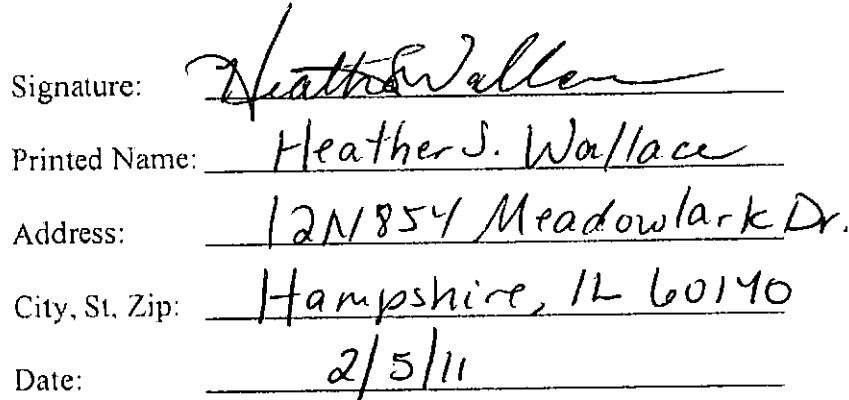 Signature: Heather S Wallace
Printed Name: Heather S. Wallace
Address: 12N854 Meadowlark Dr.
City, St, Zip: Hampshire, IL 60140
Date: 2/5/11